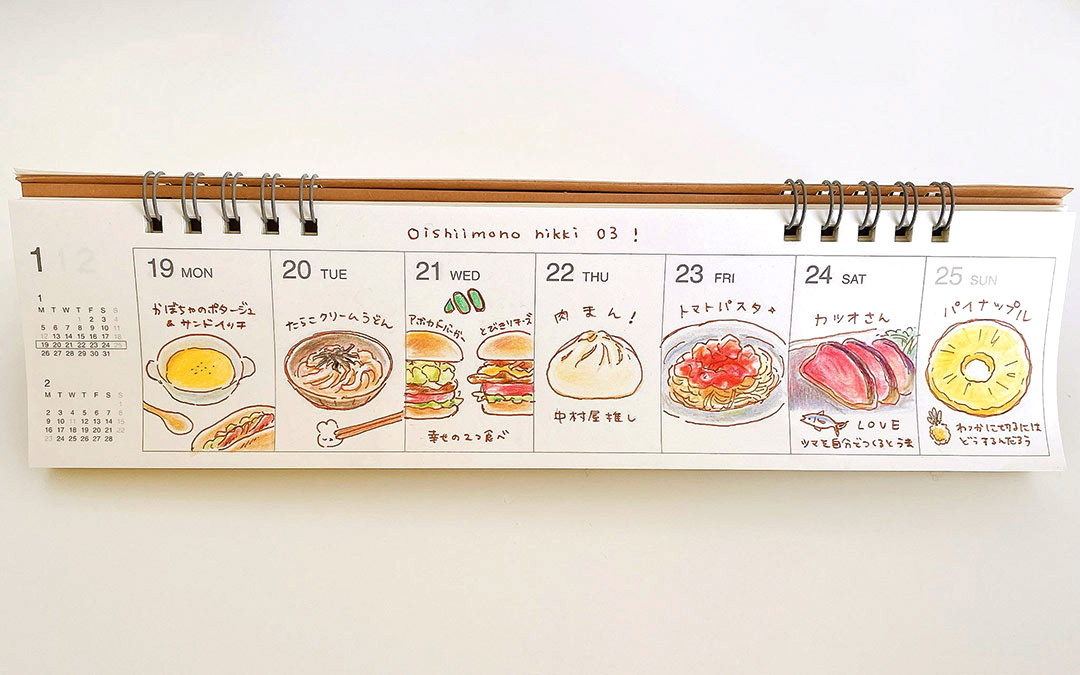 Oishiimono nikki 03 !
1 12
19 MON
かぼちゃのポタージュ
& サンドイッチ
20 TUE
たらこクリームうどん
21 WED
アボカドバーガー
とびきりチーズ
幸せの2つ食べ
22 THU
肉まん!
中村屋推し
23 FRI
トマトパスタ
24 SAT
カツオさん
LOVE
ツマを自分でつくるとうま
25 SUN
パイナップル
わっかにてきるには
どうするんだろう
1
M T W T F S S
1 2 3 4
5 6 7 8 9 10 11
12 13 14 15 16 17 18
19 20 21 22 23 24 25
26 27 28 29 30 31
2
M T W T F S S
1
2 3 4 5 6 7 8
9 10 11 12 13 14 15
16 17 18 19 20 21 22
23 24 25 26 27 28